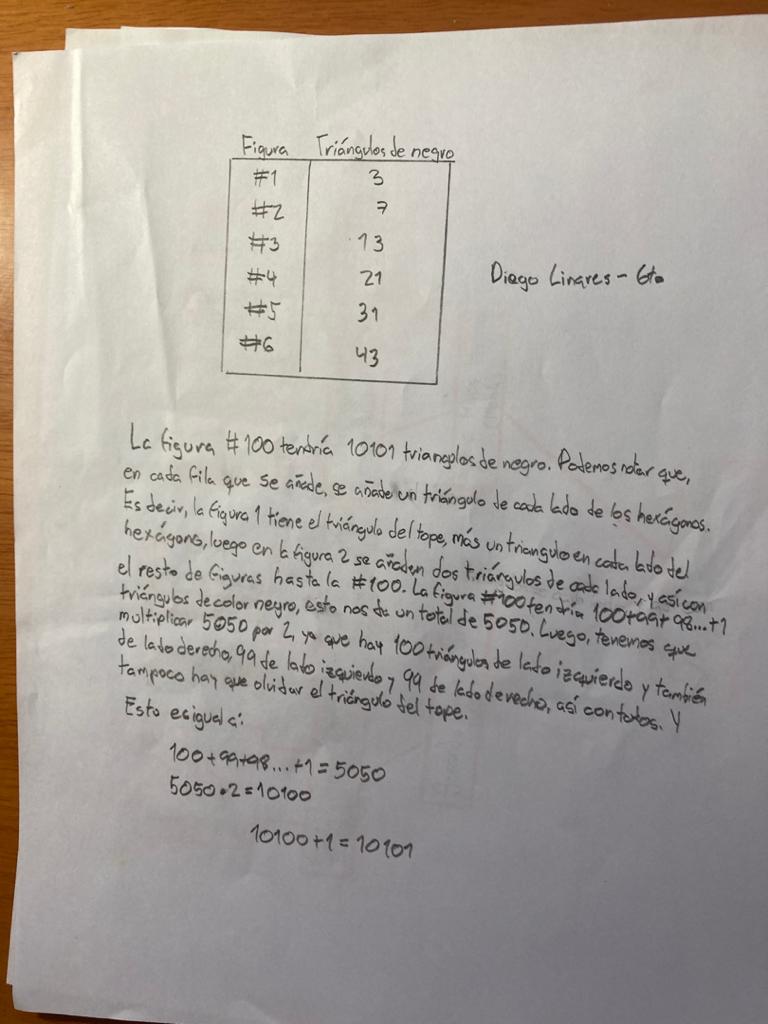 Figura Triángulos de negro
#1 3
#2 7
#3 13
#4 21
#5 31
#6 43
Diego Linares - 6to
La figura #100 tendría 10101 triangulos de negro. Podemos notar que,
en cada fila que se añade, se añade un triángulo de cada lado de los hexágonos.
Es decir, la figura 1 tiene el triángulo del tope, más un triangulo en cada lado del
hexágono, luego en la figura 2 se añaden dos triángulos de cada lado, y así con
el resto de figuras hasta la #100. La figura #100 tendría 100+99+98...+1
triángulos de color negro, esto nos da un total de 5050. Luego, tenemos que
multiplicar 5050 por 2, ya que hay 100 triángulos de lado izquierdo y también
de lado derecho, 99 de lado izquierdo y 99 de lado derecho, así con todos. Y
tampoco hay que olvidar el triángulo del tope.
Esto es igual a:
100+99+98...+1=5050
5050•2=10100
10100+1=10101